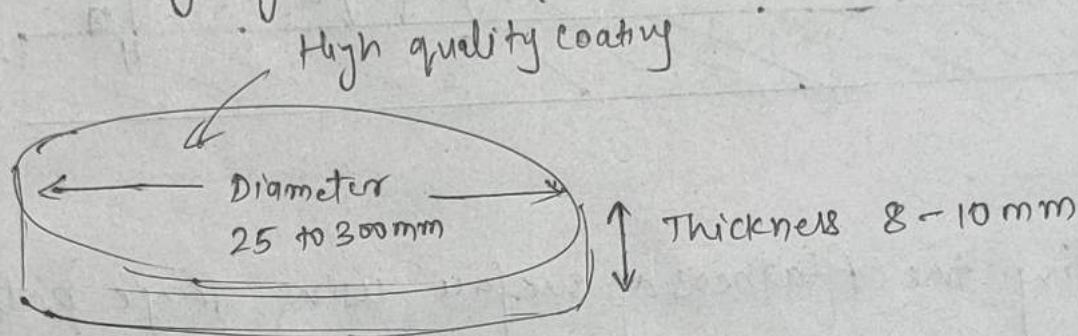 High quality coating
Diameter
25 to 300mm
Thickness 8-10mm